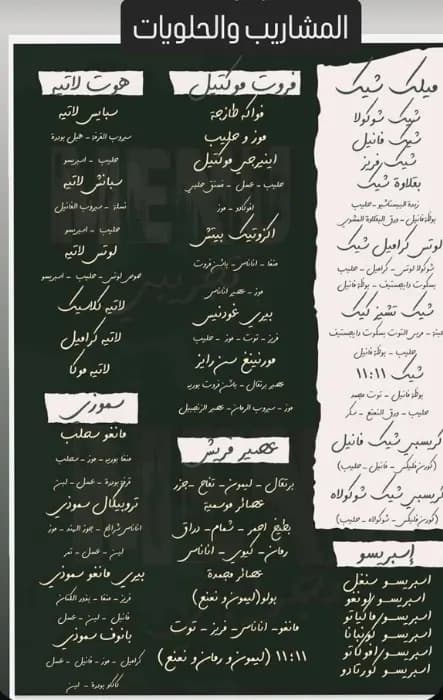 المشاريب والحلويات
ميلك شيك
شيك شوكولا
شيك فانيل
شيك فريز
بقلاوة شيك
زبدة البيستاشيو - حليب
بوظة فانيل - ورق البقلاوة المشوي
لوتس كراميل شيك
شوكولا لوتس - كراميل - حليب
بسكوت دايجستيف - بوظة فانيل
شيك تشيز كيك
جبنة - مربى التوت بسكوت دايجستيف
حليب - بوظة فانيل
شيك ١١:١١
بوظة فانيل - توت مجمد
حليب - ورق النعنع - سكر
كريسبي شيك فانيل
(كورن فليكس - فانيل - حليب)
كريسبي شيك شوكولاه
(كورن فليكس - شوكولاه - حليب)
إسبريسو
اسبريسو سنغل
اسبريسو لونغو
اسبريسو ماكياتو
اسبريسو كورتبانا
اسبريسو افوكاتو
اسبريسو كورتادو
فروت موكتيل
فواكه طازجة
موز و حليب
اينيرجي موكتيل
حليب - عسل - فستق حلبي
افوكادو - موز
اكزوتيك بيتش
منغا - اناناس - باشن فروت
موز - عصير اناناس
بيري غودنيس
فريز - توت - موز - حليب
مورنينغ سن رايز
عصير برتقال - باشن فروت بوريه
موز - سيروب الرمان - عصير الزنجبيل
عصير فريش
برتقال - ليمون - تفاح - جزر
عصائر موسمية
بطيخ احمر - شمام - دراق
رمان - كيوي - اناناس
عصائر مجمدة
بولو (ليمون و نعنع)
مانغو - اناناس - فريز - توت
١١:١١ (ليمون و رمان و نعنع)
هوت لاتيه
سبايس لاتيه
سيروب القرفة - هيل بودرة
حليب - اسبريسو
سبانش لاتيه
نسلة - سيروب الفانيل
حليب - اسبريسو
لوتس لاتيه
صوص لوتس - حليب - اسبريسو
لاتيه كلاسيك
لاتيه كراميل
لاتيه موكا
سموزي
مانغو سحلب
منغا بوريه - موز - سحلب
قرفة بودرة - عسل - لبن
تروبيكال سموذي
اناناس شرائح - جوز الهند - موز
لبن - عسل - تمر
بيري مانغو سموذي
فريز - منغا - بذور الكتان
فانيل - لبن - عسل
بانوف سموذي
كراميل - موز - فانيل - عسل
كاكو بودرة - لبن